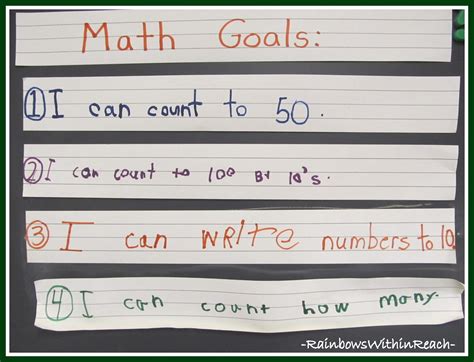 Math Goals:
① I can count to 50.
② I can count to 100 By 10's.
③ I can write numbers to 10
④ I can count how many.
-RainbowsWithinReach-